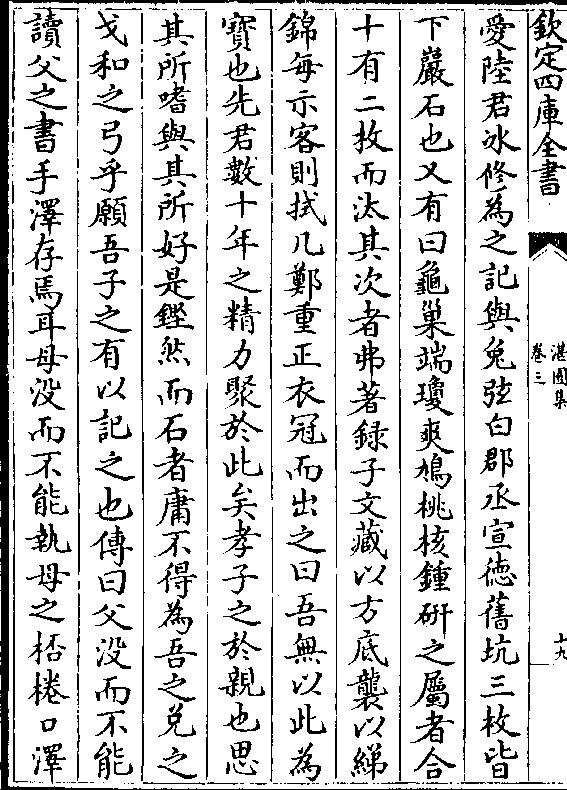 欽定四庫全書
湛園集
卷三
十九
愛陸君冰修為之記與兔弦白郡丞宣徳舊坑三枚皆
下巖石也又有曰龜巢端瓊爽鳩桃核鍾硏之屬者合
十有二枚而汰其次者弗著録子文藏以方底襲以綈
錦每示客則拭几鄭重正衣冠而出之曰吾無以此為
寳也先君數十年之精力聚於此矣孝子之於親也思
其所嗜與其所好是鏗然而石者庸不得為吾之兌之
戈和之弓乎願吾子之有以記之也傳曰父没而不能
讀父之書手澤存焉耳母没而不能執母之桮棬口澤